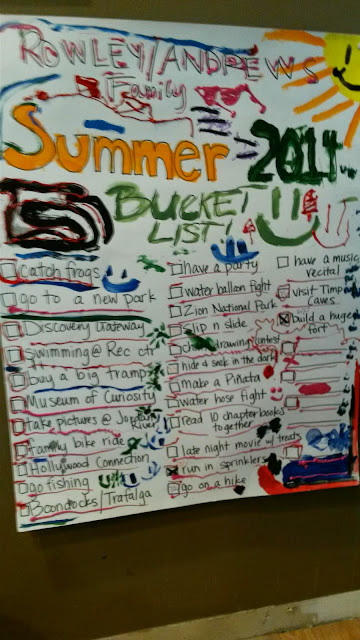 ROWLEY/ANDREWS
Family
Summer 2014
BUCKET
LIST!
catch frogs
go to a new park
Discovery Gateway
Swimming @ Rec ctr
buy a big Tramp
Museum of Curiosity
take pictures @ Jordan River
family bike ride
Hollywood Connection
go fishing
Boondocks/Trafalga
have a party
water ballon fight
Zion National Park
Slip n slide
drawing contest
hide & seek in the dark
make a Piñata
water hose fight
read 10 chapter books
together
late night movie w/ treats
run in sprinklers
go on a hike
have a music
recital
visit Timp
caves
build a huge
fort